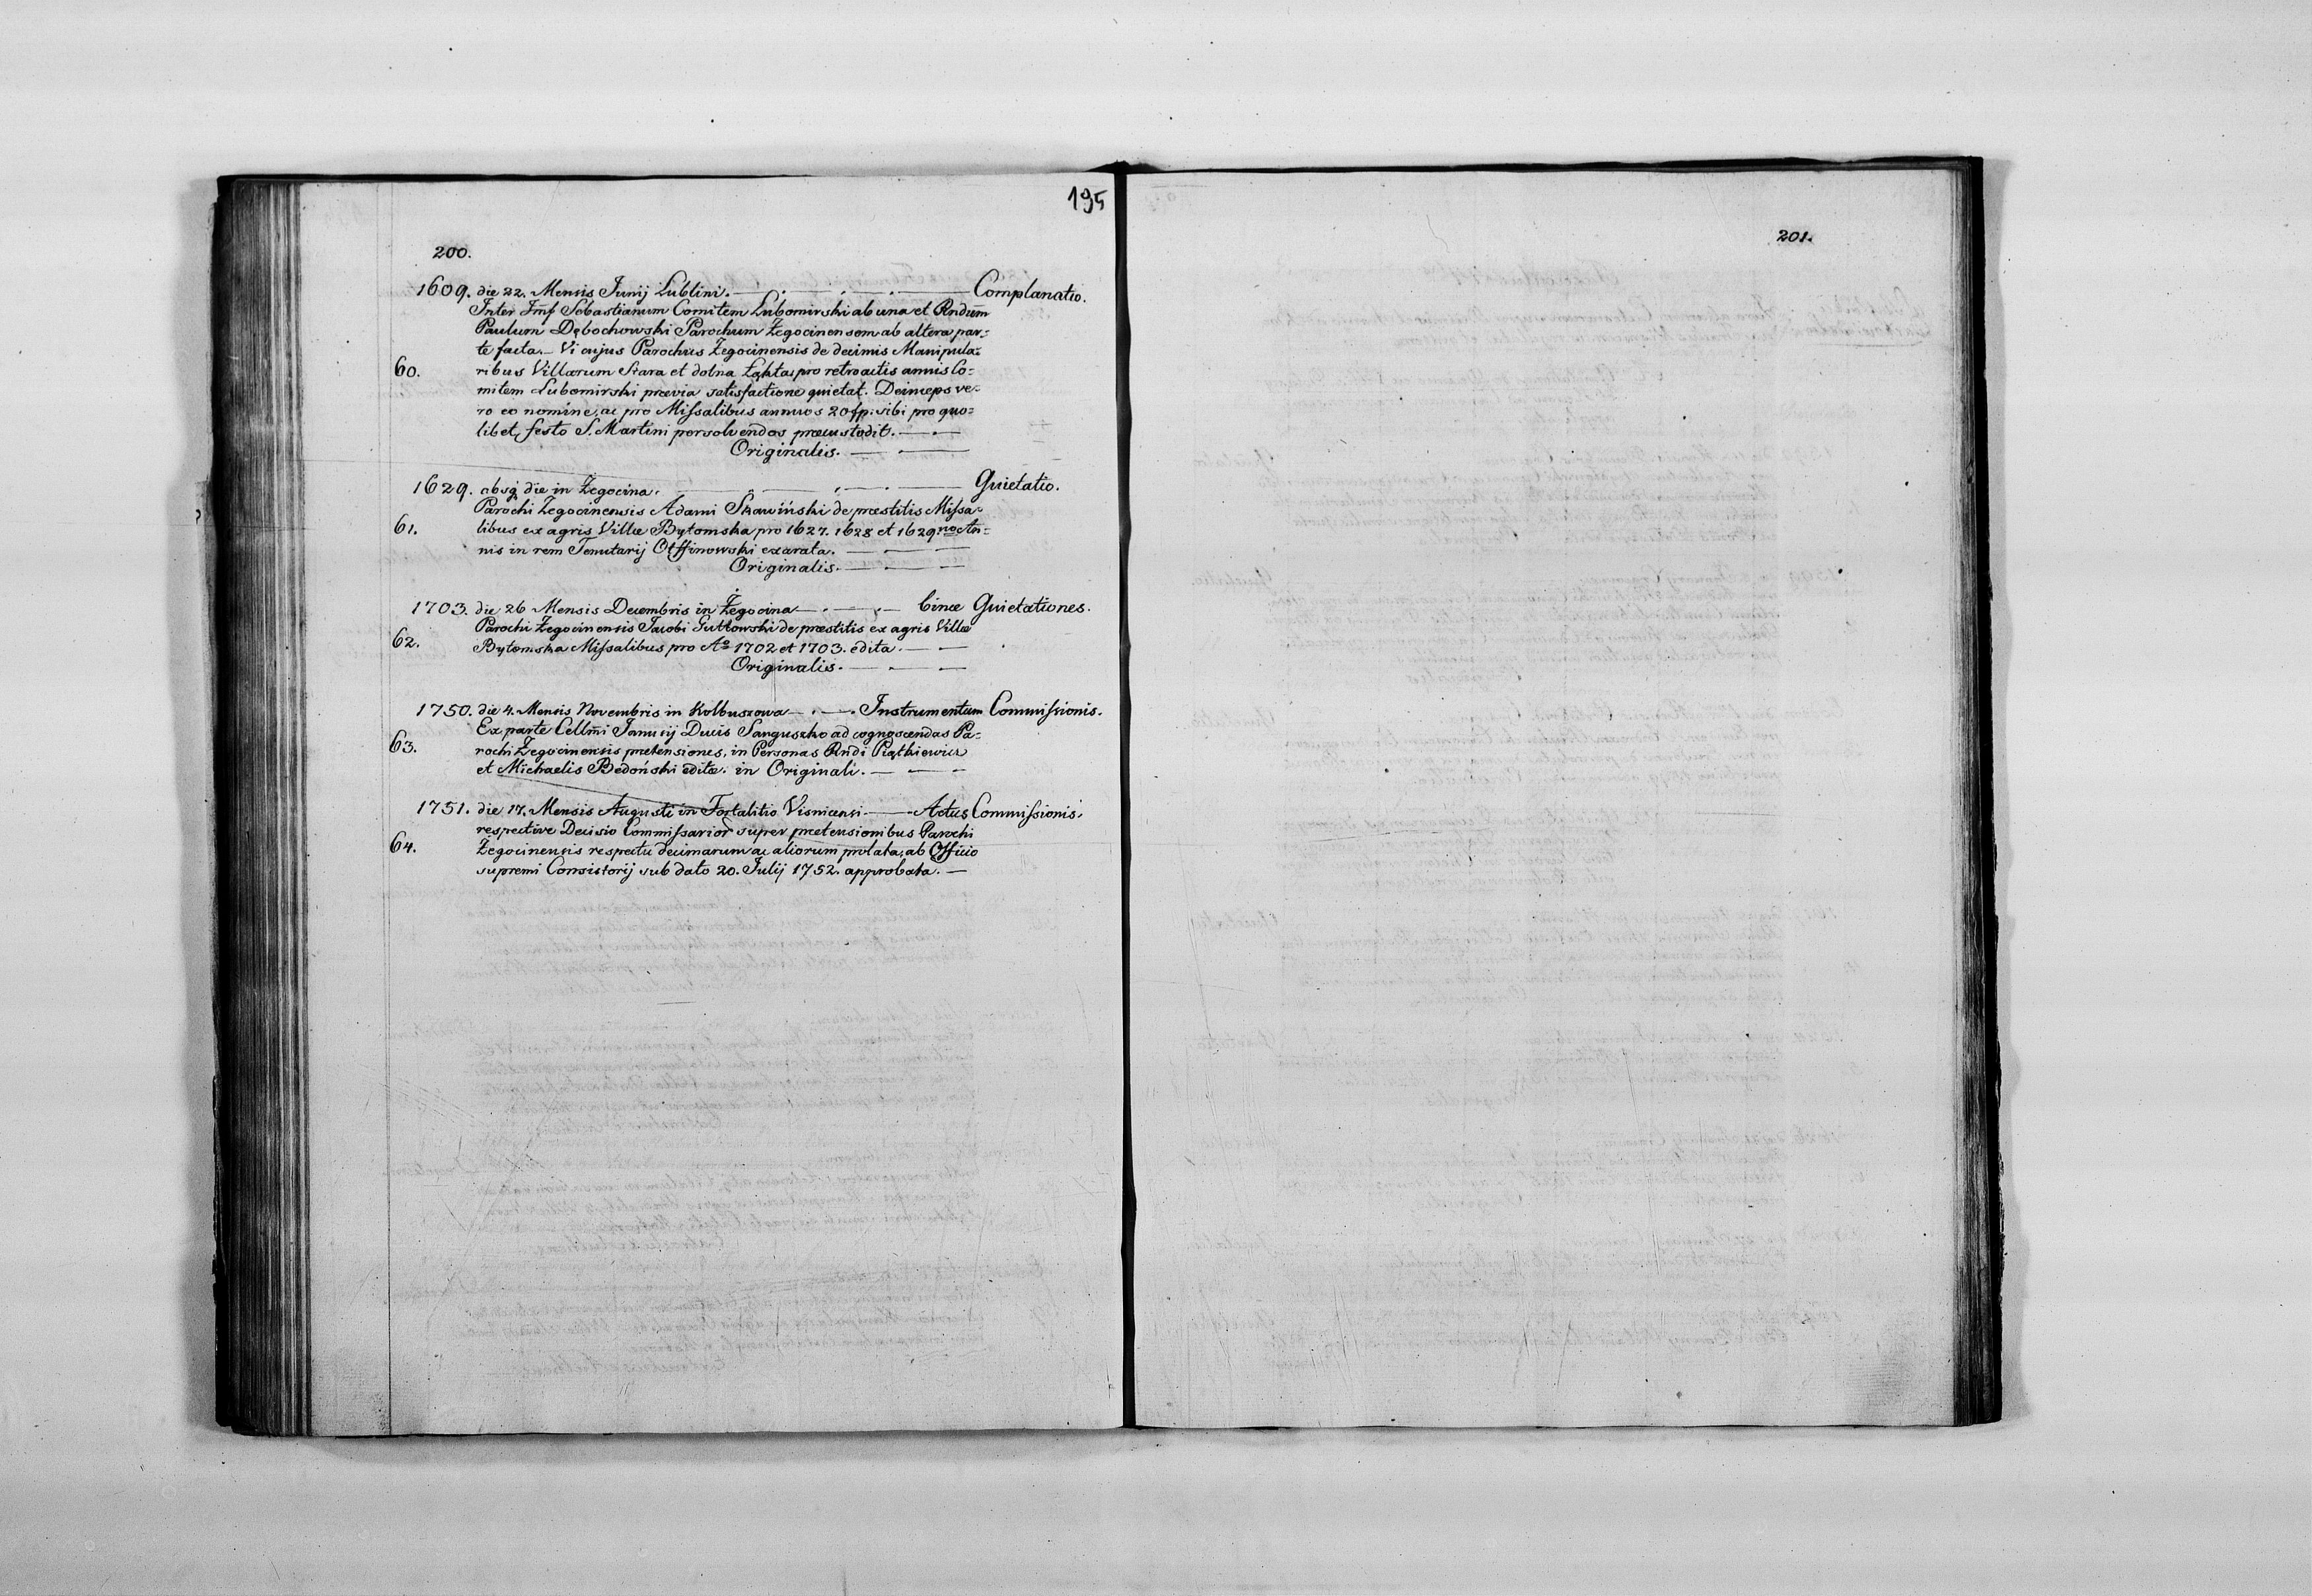 195
200.
1609. die 22. Mensis Junij Lublini. Complanatio.
Inter Jmf Sebastianum Comitem Lubomirski ab una et Rndum
Paulum Dębochowski Parochum Żegocinensem ab altera par=
te facta. Vi cujus Parochus Żegocinensis de decimis Manipula=
60. ribus Villarum Stara et dolna Łąkta pro retroactis annis Co=
mitem Lubomirski prævia satisfactione quietat. Deinceps ve=
ro eo nomine, ac pro Missalibus annuos 20 fp: sibi pro quo=
libet, festo S. Martini persolvendos præcustodit.
Originalis.
1629. absq die in Żegocina. Quietatio.
Parochi Żegocinensis Adami Skawiński de præstitis Missa=
61. libus ex agris Villæ Bytomska pro 1627. 1628 et 1629no An=
nis in rem Tenutarij Otffinowski exarata.
Originalis.
1703. die 26 Mensis Decembris in Żegocina binæ Quietationes.
Parochi Żegocinensis Jacobi Guttowski de præstitis ex agris Villæ
62. Bytomska Missalibus pro Ao 1702 et 1703. edita.
Originalis.
1750. die 4. Mensis Novembris in Kolbuszowa Instrumentum Commissionis.
Ex parte Cellmi Janusij Ducis Sanguszko ad cognoscendas Pa=
63. rochi Żegocinensis prætensiones, in Personas Rndi Piątkiewicz
et Michaelis Bedoński editæ. in Originali.
1751. die 17. Mensis Augusti in Fortalitio Visnicensi Actus Commissionis.
respective Decisio Commissarior super prætensionibus Parochi
64. Żegocinensis respectu decimarum ac aliorum prolata, ab Officio
supremi Consistorij sub dato 20. Julij 1752. approbata.
201.